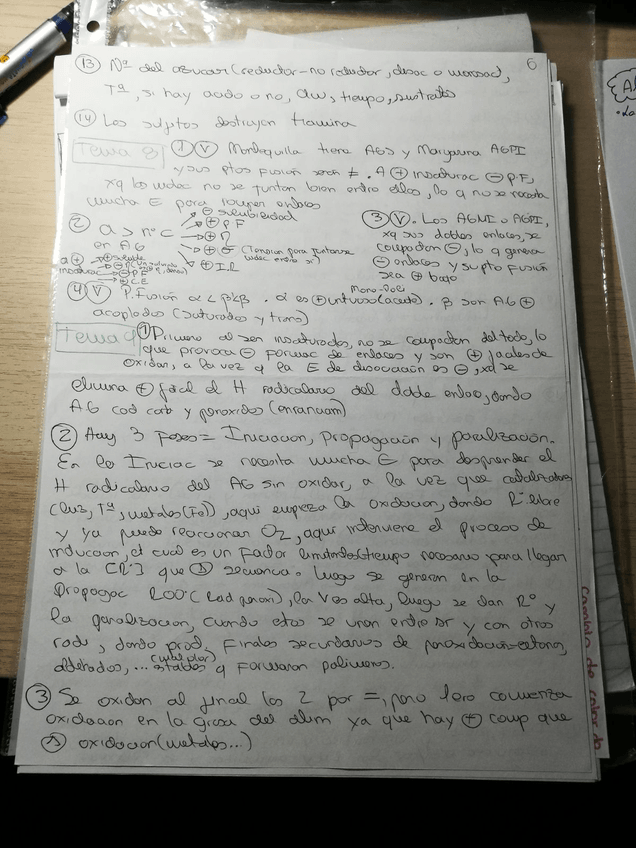 6
13 Nª del azucar (reductor-no reductor, disac o monosac),
Tª, si hay acido o no, aw, tiempo, sustrato
14 Los sulfitos destruyen tiamina
Tema 8
1 V Mantequilla tiene AGS y Margarina AGPI
y sus ptos fusión serán ≠. A ⊕ insaturac ⊖ p.F,
xq las molec no se juntan bien entre ellas, lo q no se necesita
mucha E para romper enlaces
2 a > nº C
en AG
⊖ solubilidad
⊕ P.F
⊕ η
⊕ σ (Tension para juntarse
molec entre si)
⊕ I.R
a ⊕
insaturac
⊕ soluble
⊖ P.F
⊖ C.E
3 V. Los AGMI o AGPI,
xq sus dobles enlaces, se
empaquetan ⊖, lo q genera
⊖ enlaces y su pto fusión
sea ⊕ bajo
4 V P.Fusión α < β' < β. α es ⊕ untuoso (aceite). β son AG ⊕
acoplados (saturados y trans)
Tema 9
1 Primero al ser insaturados, no se empaquetan del todo, lo
que provoca ⊖ formac de enlaces y son ⊕ faciles de
oxidar, a la vez q la E de disociación es ⊖, xq se
elimina ⊕ fácil el H radicalario del doble enlace, dando
AG con carb y peroxidos (enrancian)
2 Hay 3 fases = Iniciacion, propagación y paralización.
En la Iniciac se necesita mucha E para desprender el
H radicalario del AG sin oxidar, a la vez que catalizadores
(luz, Tª, metales (Fe)), aqui empieza la oxidacion, dando R· libre
y ya puede reaccionar O₂, aqui interviene el proceso de
induccion, el cual es un factor limitante (tiempo necesario para llegar
a la [R·] que secuencia. Luego se generan en la
Propagac ROO· (Rad peroxi), la V es alta, luego se dan R· y
la paralización, cuando estos se unen entre si y con otros
radi, dando prod. Finales secundarios de peroxidación - cetonas,
aldehidos, ... estables q formaran polimeros.
3 Se oxidan al final los 2 por =, pero 1ero comienza
oxidacion en la grasa del alim ya que hay ⊕ comp que
oxidacion (metales...)
Cambio de color de